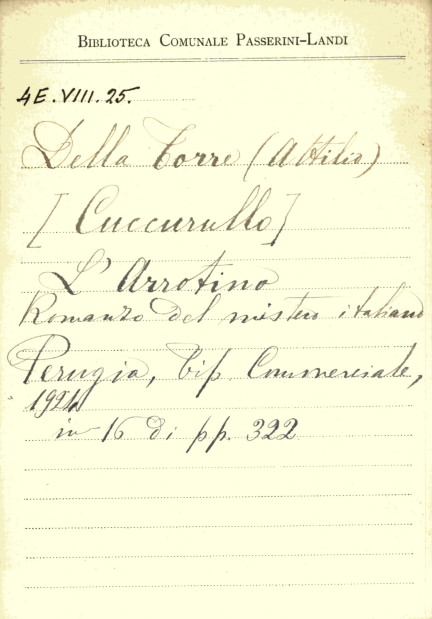 BIBLIOTECA COMUNALE PASSERINI-LANDI
4E.VIII.25.
Della Torre (Attilio)
[Cuccurullo]
L'Arrotino
Romanzo del mistero italiano
Perugia, Tip Commerciale,
1924
in 16 di pp. 322